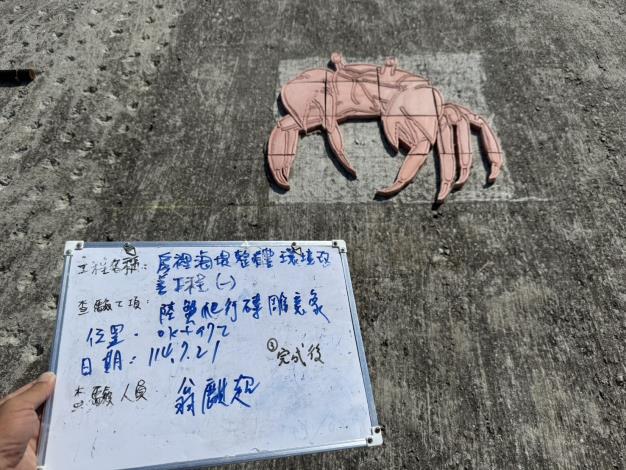 工程名稱: 房裡海堤整體環境改
善工程(一)
查驗工項: 陸蟹爬行磚雕意象
位置: 0K+492
日期: 114.7.21
③完成後
查驗人員: 翁